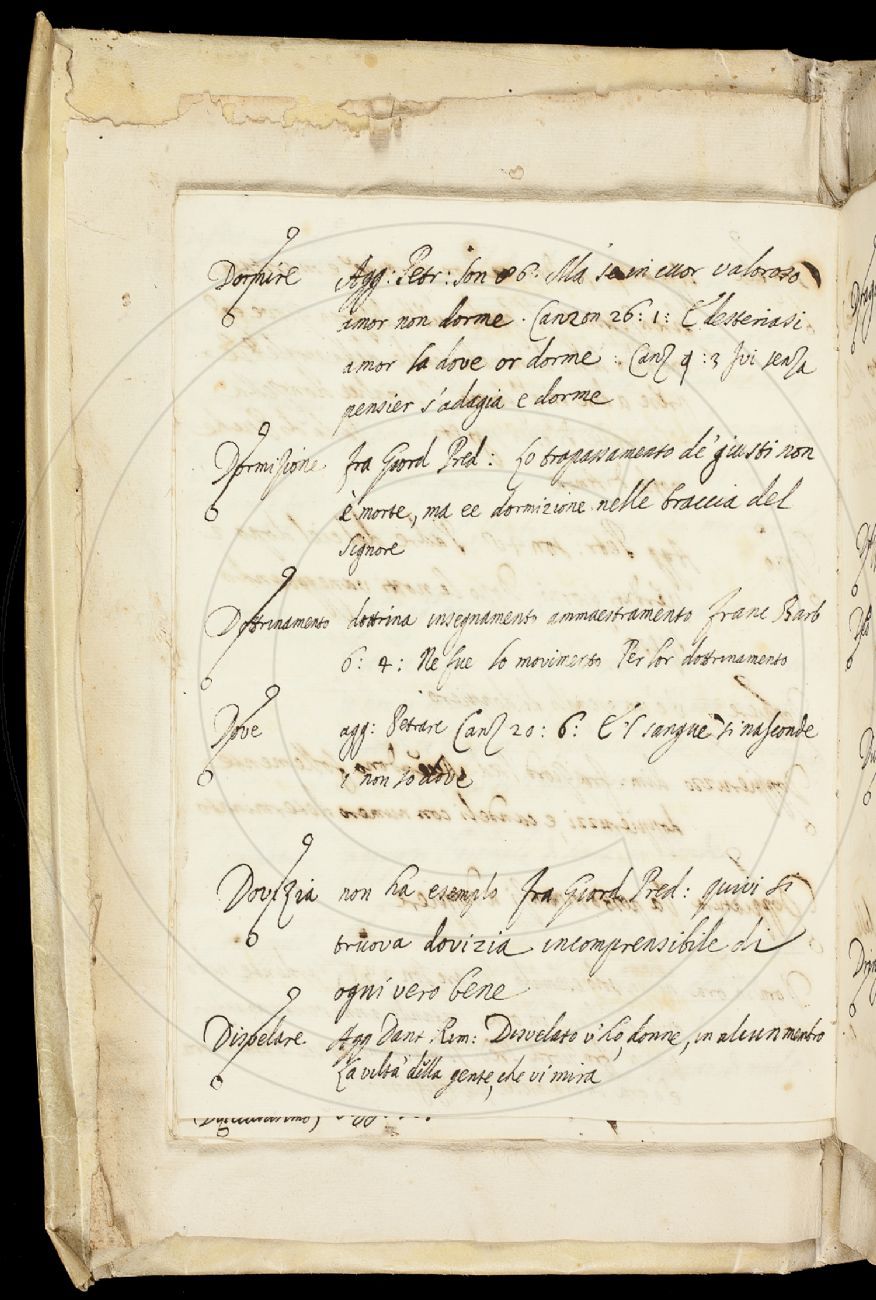 Dormire Agg: Petr: Son 86. Ma se in cuor valoroso
amor non dorme. Canzon 26: 1: E desteriasi
amor la dove or dorme: Canz 9: 3 Ivi senza
pensier s'adagia e dorme
Dormizione fra Giord Pred: Lo trapassamento de' giusti non
è morte, ma ee dormizione nelle braccia del
Signore
Dottrinamento dottrina insegnamento ammaestramento franc Barb
6: 4: Ne fue lo movimento Per lor dottrinamento
Dove agg: Petrarc Canz 20: 6: E 'l sangue si nasconde
i' non so dove
Dovizia non ha esemplo fra Giord Pred: quivi si
truova dovizia incomprensibile di
ogni vero bene
Disvelare Agg Dant: Rim: Disvelato v'ho, donne, in alcun membro
La viltà della gente, che vi mira